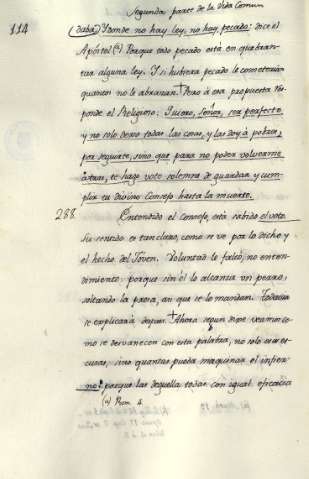 Segunda parte de la Vida Comun
114
(daba) Donde no hay Ley, no hay pecado: dice el
Apóstol (a) Porque todo pecado está en quebran-
tar alguna ley. I si hubiera pecado le cometerían
quantos no le abrazan. Pero á esa propuesta res-
ponde el Religioso: I quiero, Señor, ser perfecto
y no solo dexo todas las cosas, y las doy á pobres,
por seguirte, sino que para no poder volverme
atras, te hago voto solemne de guardar, y cum-
plir tu divino Consejo hasta la muerte.
288
Entendido el Consejo, está sabido el voto.
Su sentido es tan claro, como se ve por lo dicho y
el hecho del Joven. Voluntad le faltó, no enten-
dimiento: porque sin él lo alcanza un perro,
soltando la presa, aun que se lo mandan. Todavia
se explicará despues. Ahora segun sigue veamos co-
mo se desvanecen con esta palabra, no solo sus es-
cusas, sino quantas pueda maquinar el infier-
no: porque las deguella todas con igual eficacia
(a) Rom. 4.